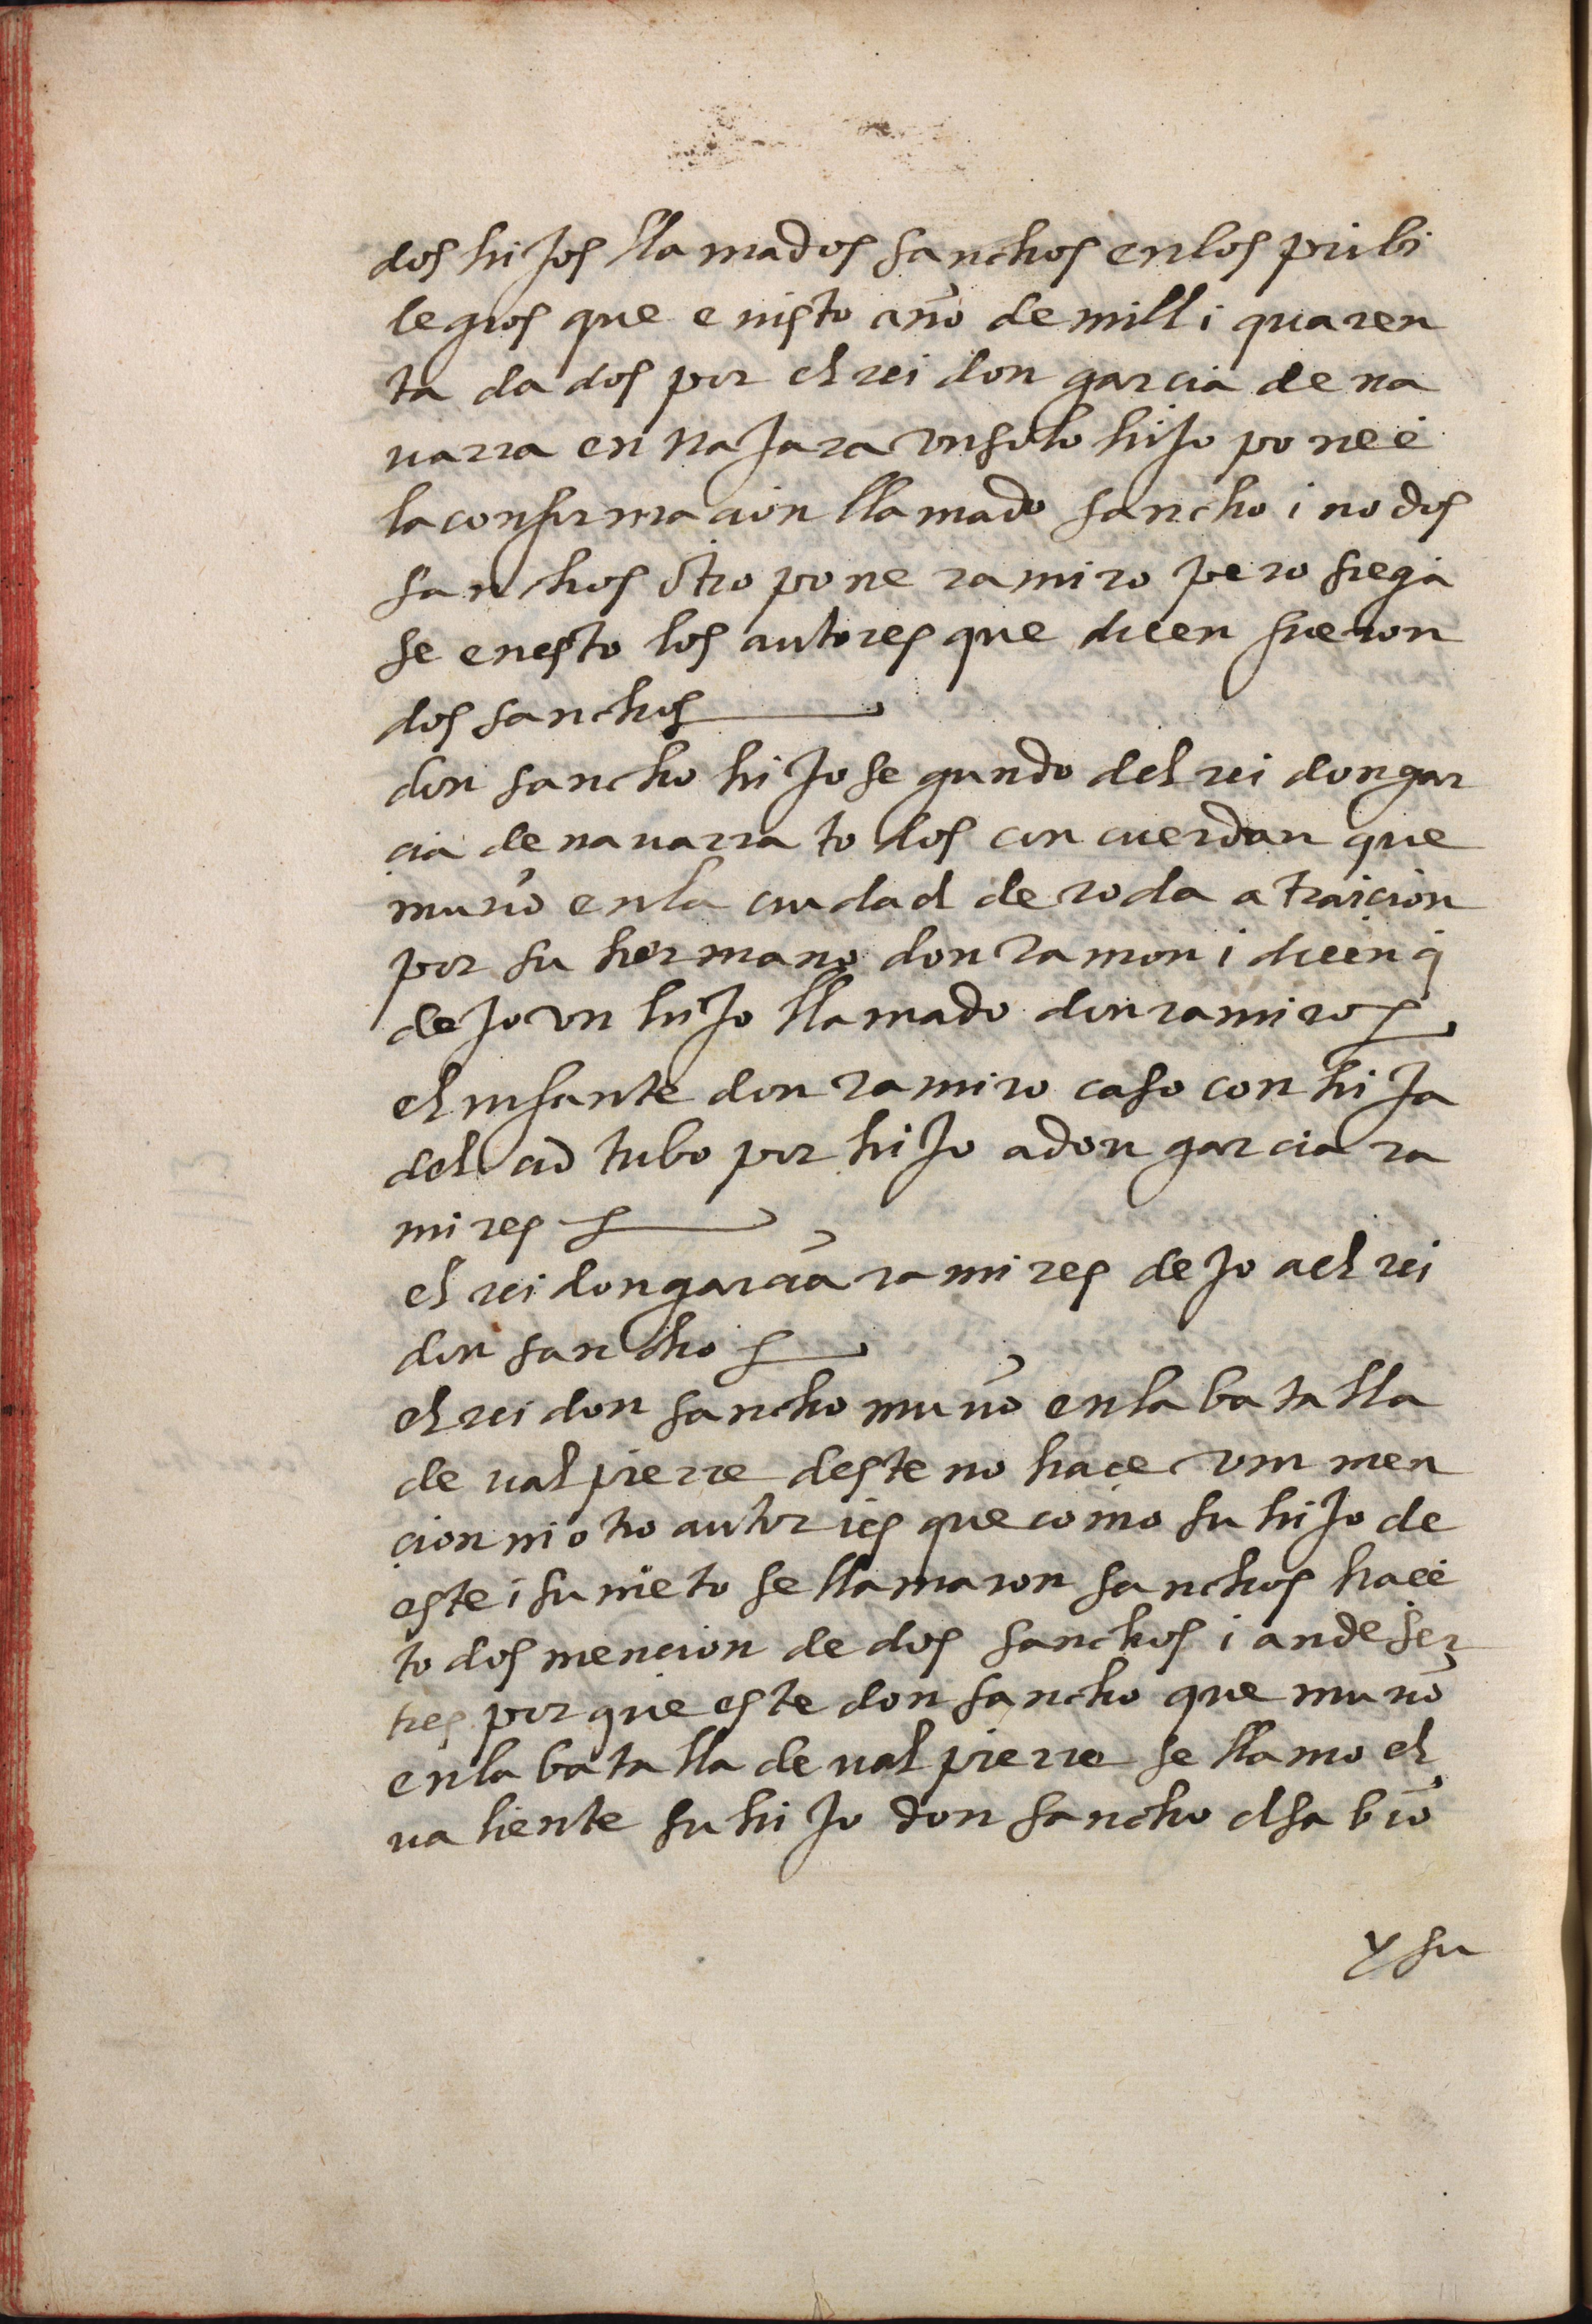 dos hijos llamados sanchos en los pribi
legios que e uisto año de mill i quaren
ta dados por el rei don garcia de na
uarra en najara un solo hijo pone e
la confirmacion llamado sancho i no dos
sanchos otro pone ramiro pero siga
se en esto los autores que dicen fueron
dos sanchos
don sancho hijo segundo del rei don gar
cia de nauarra todos concuerdan que
murio en la ciudad de roda a traicion
por su hermano don ramon i dicen q
dejo un hijo llamado don ramiro
el infante don ramiro caso con hija
del cid tubo por hijo a don garcia ra
mires
el rei don garcia ramires dejo a el rei
don sancho
el rei don sancho murio en la batalla
de ualpierre deste no hace mencion
cion ni otro autor i es que como su hijo de
este i su nieto se llamaron sanchos hace
todos mencion de dos sanchos i an de ser
tres porque este don sancho que murio
en la batalla de ualpierre se llamo el
ualiente su hijo don sancho el sabio
y su